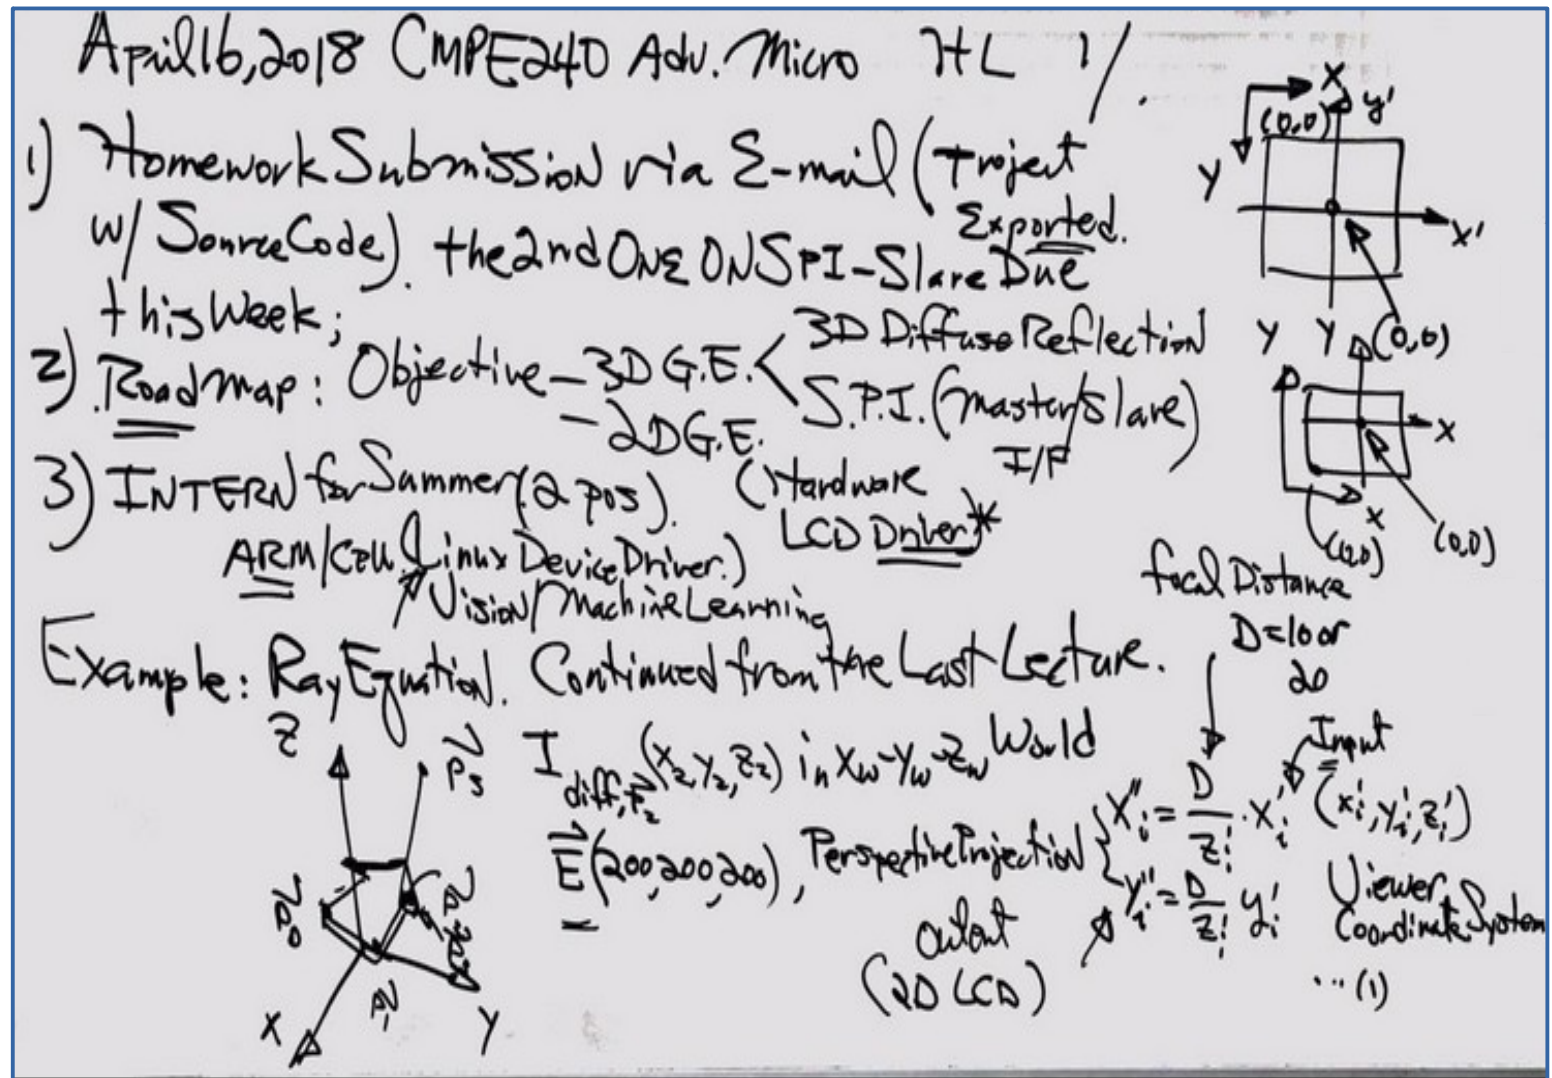 April 16, 2018 CMPE240 Adv. Micro HL 1/.
1) Homework Submission via E-mail (Project
Exported.
w/ Source Code). the 2nd ONE ON SPI-Slave Due
this Week;
2) Roadmap: Objective – 3D G.E. < 3D Diffuse Reflection
S.P.I. (Master/Slave)
I/F
– 2D G.E.
(Hardware
LCD Driver)*
3) INTERN for Summer (2 pos).
ARM/ (Linux Device Driver.)
Vision/Machine Learning
X y'
(0,0)
Y
X'
Y Y (0,0)
X
X
(0,0) (0,0)
Example: Ray Equation. Continued from the Last Lecture.
focal Distance
D=10 or
20
Z P3
P0
P1
X Y
I diff, P2 (X2, Y2, Z2) in Xw-Yw-Zw World
E(200,200,200), Perspective Projection
Xi'' = D/Zi' · Xi'
Yi'' = D/Zi' yi'
Input
(xi', yi', zi')
Viewer
Coordinate System
... (1)
Output
(2D LCD)